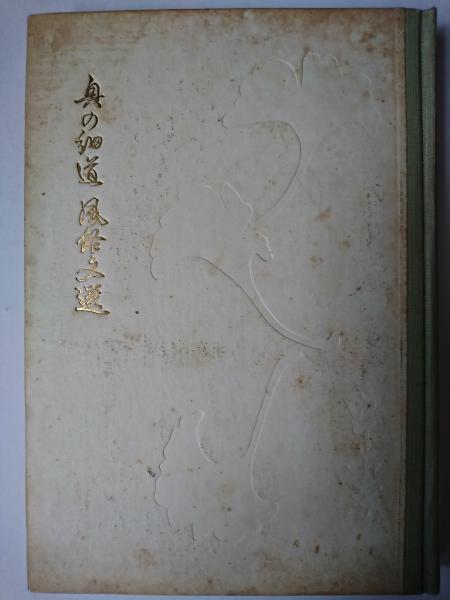 奥の細道 風俗文選